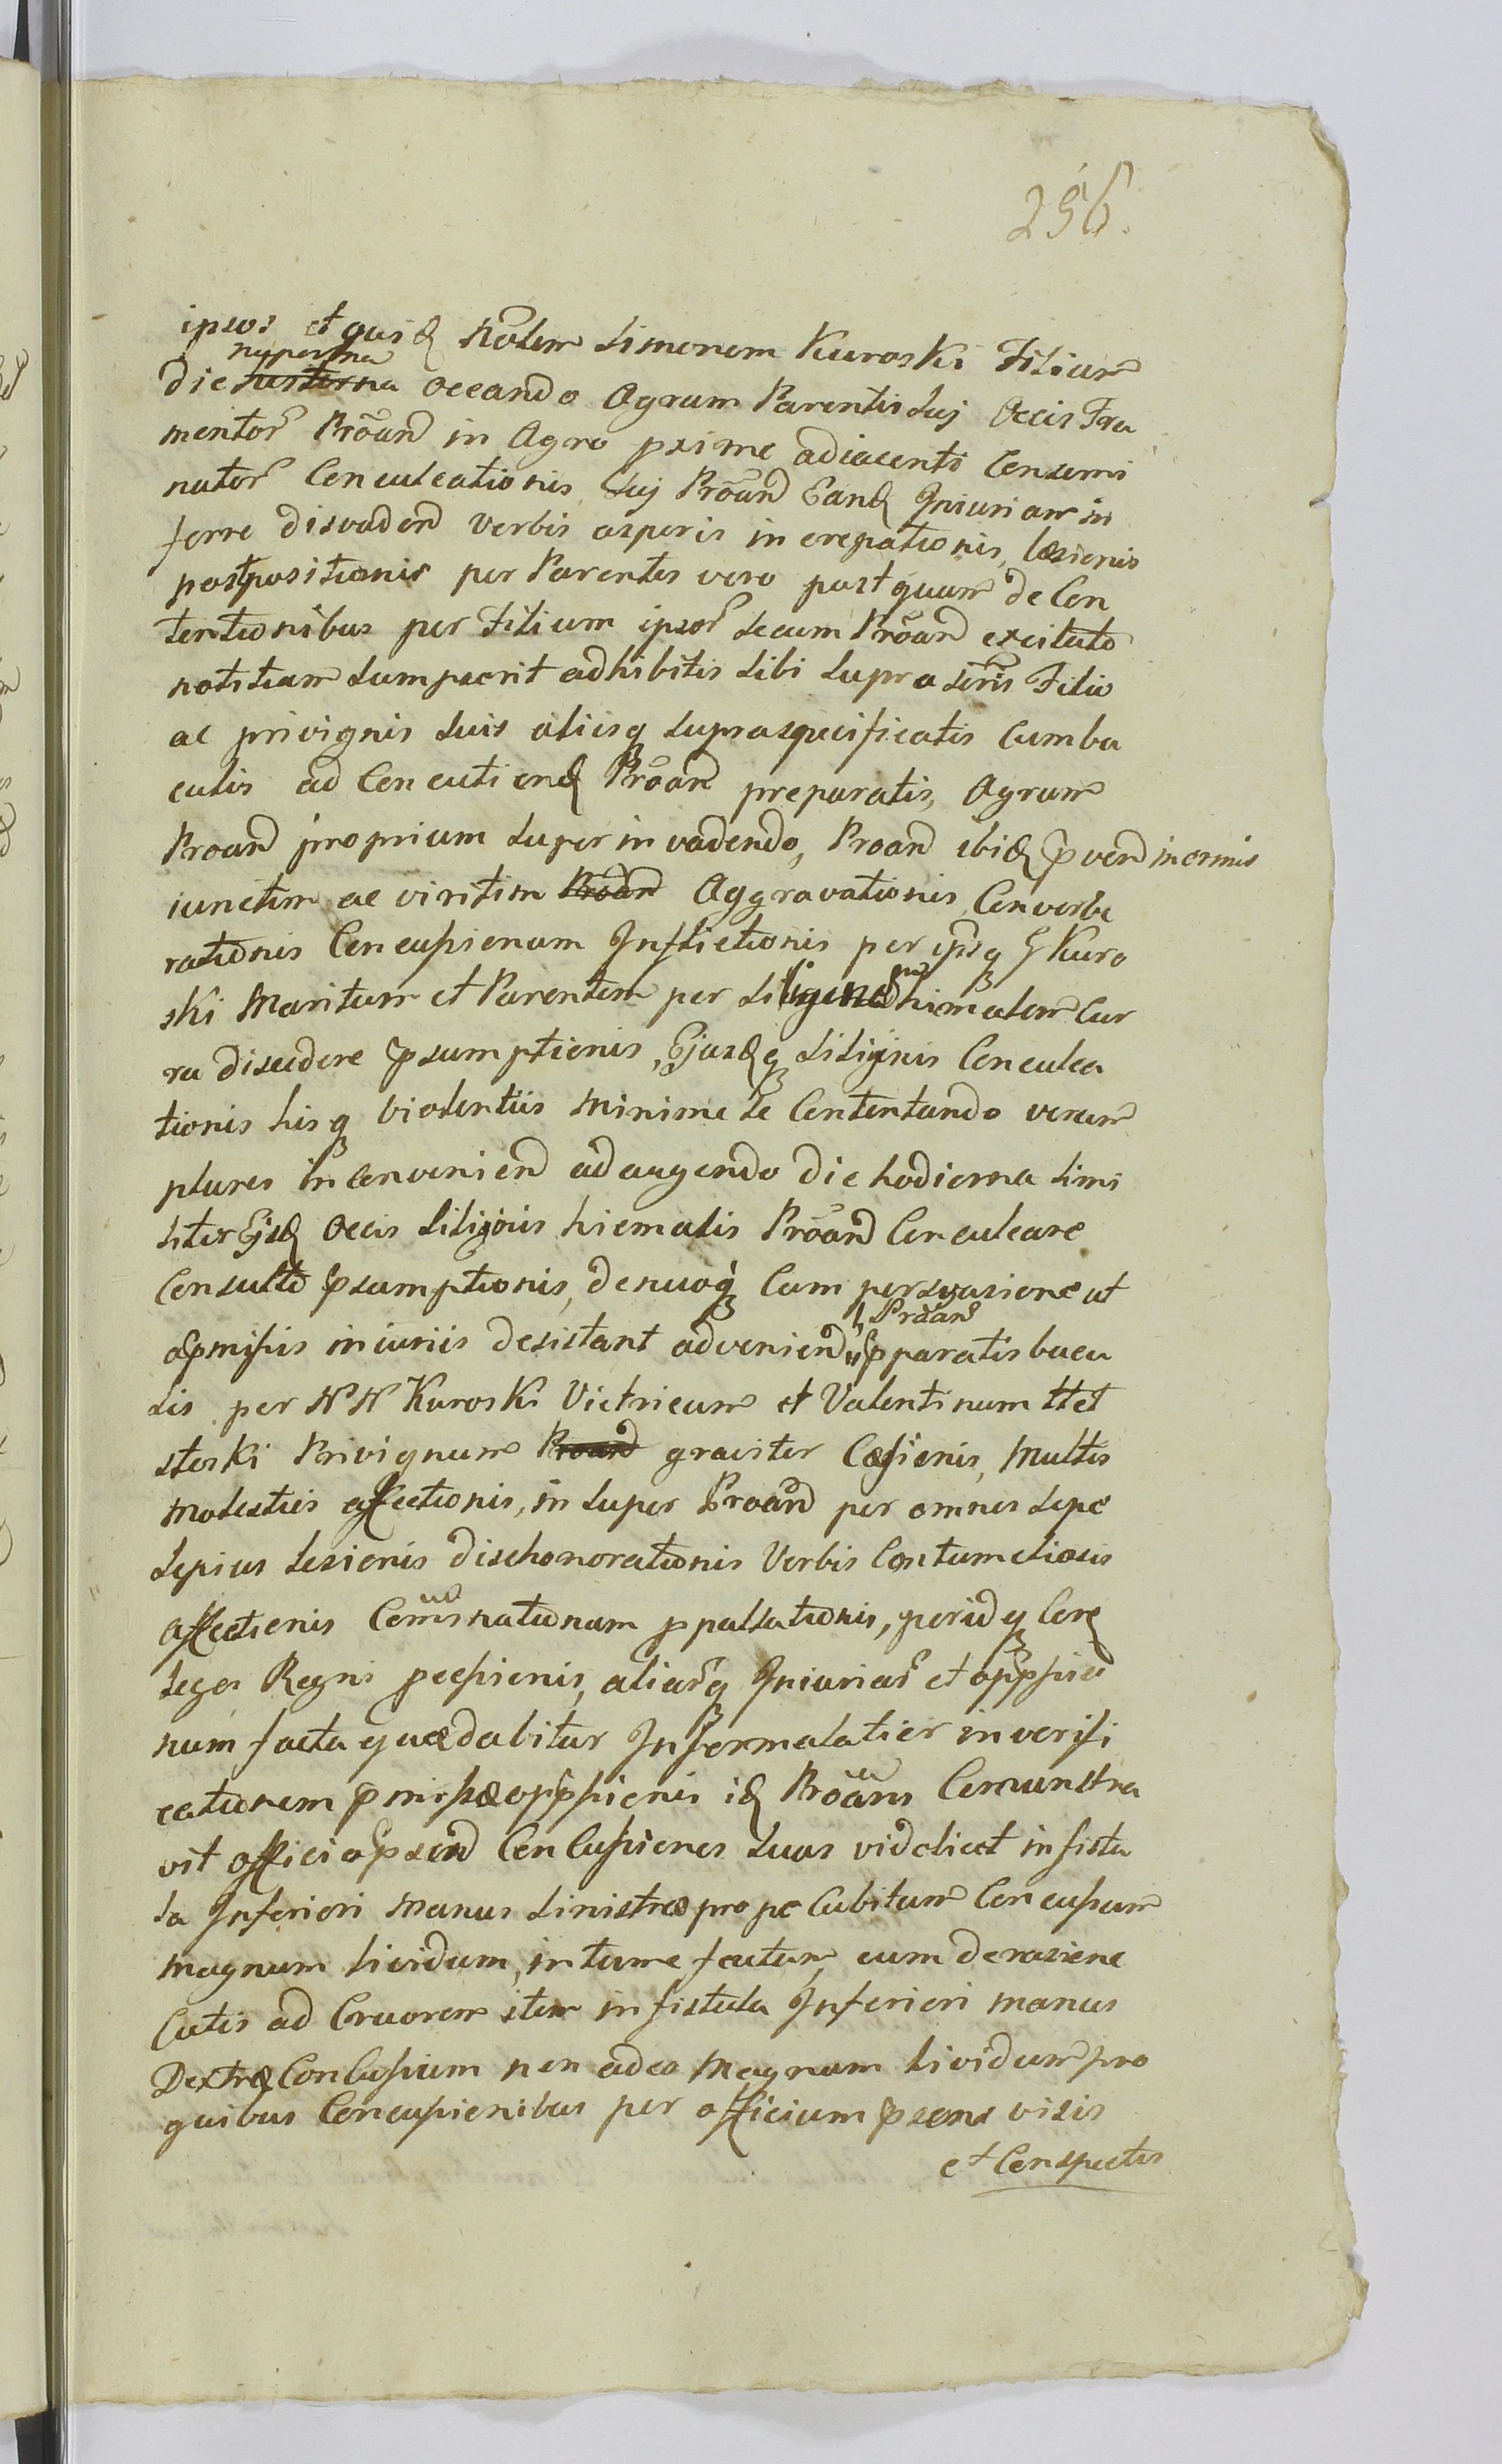 256.
ipsos et quidȝ Nolem Simonem Kuroski Filium
nuperna
die hesterna occando Agrum Parentis Suj Occis Fra
mentor Proãnd in Agro proxime adiacenti Consemi
nator Conculcationis Suj Proãnd Eandȝ Iniuriam in
ferre disvadend Verbis asperis increpationis, læsionis
postpositionis per Parentes vero postquam de Con
tentionibus per Filium ipsor Secum Proãnd excitato
notitiam Sumpserit adhibitis Sibi Supra Scris Filio
ac privignis Suis aliisq Supraspecificatis Cum ba
culis ad Concutiendȝ Proãn preparatis, Agrum
Proand proprium Super invadendo, Proand ibidȝ pvend inermis
iunctim ac viritim Proãnd Aggravationis, Converbe
rationis Concussionum Inflictionis per ipsq G Kuro
ski Maritum et Parentem per Siligened hiemalem Cur
ru discedere psumptionis, Ejusdȝq Siliginis Conculca
tionis hisq violentiis Minime Se Contentando verum
plures inconveniend adaugendo die hodierna Simi
liter Ejsdȝ Occis Siliginis hiemalis Proãnd Conculcare
Consulto psumptionis, denuoq Cum persvasione ut
Proãnd
a pmissis iniuriis desistant adveniend pparatis bacu
lis per NN Kuroski Victricum et Valentinum
steski Privignum Proand graviter Cæsionis, Multis
Molestiis affectionis, in Super Proand per omnes Sepe
Sepius Lesionis dischonorationis Verbis Contumeliosis
affectionis Comisnationum ppalsationis, peridq Corȝ
leges Regni pcessionis, aliarq Iniuriar et oppssio
num facta quædabitur Informalatior in verifi
cationem pmissæ oppssionis idȝ Proãns Comunstra
vit officio psend Conlussiones Suas videlicet in fistu
la Inferiori Manus Sinistræ prope Cubitum Concussum
Magnum lividum, intumefactum, cum derasione
Cutis ad Cruorem item in fistula Inferiori manus
Dextræ Conlussium non adeo Magnum lividum pro
quibus Concussionibus per officium psens visis
et Conspectis